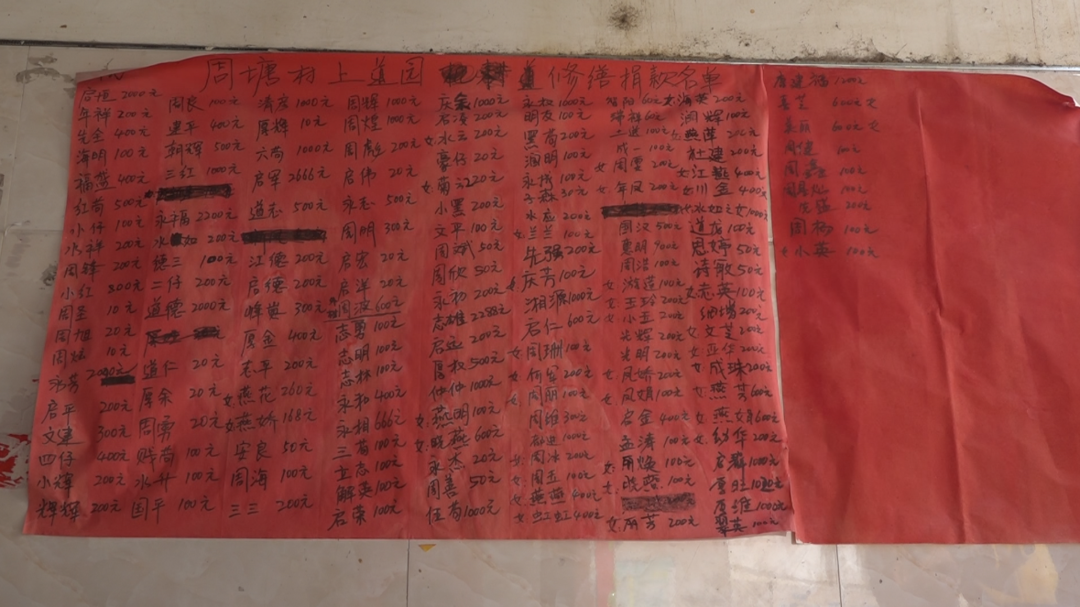 周塘村上道园 道修缮捐款名单
启恒 2000元
年祥 200元
先全 400元
海明 100元
福燕 400元
红苟 500元
小仔 100元
水祥 200元
周锋 200元
小红 800元
周星 10元
周旭 20元
周炫 10元
2000元
启平 200元
文建 300元
四仔 400元
小辉 200元
辉辉 200元
周良 100元
建平 400元
朝辉 500元
三红 1000元
永福 2200元
水如 200元
德三 100元
二仔 200元
道德 2000元
道仁 20元
厚余 20元
周勇 20元
贱苟 100元
水升 100元
国平 100元
清彦 1000元
厚辉 10元
六苟 1000元
启军 2666元
道志 500元
江德 200元
启德 200元
辉崽 300元
厚金 400元
志平 200元
女燕花 260元
女燕娇 168元
安良 50元
周海 100元
三三 200元
周晖 1000元
周煌 1000元
周彪 200元
启伟 20元
永志 500元
周明 300元
启宏 20元
启洋 20元
周波 600元
志勇 100元
志明 100元
志林 100元
永和 400元
永相 666元
三苟 100元
立志 100元
解英 100元
启荣 100元
庆余 1000元
启凌 200元
女水云 200元
豪仔 20元
小黑 200元
文平 100元
周斌 50元
周欣 50元
永初 200元
志雄 2288元
启远 200元
厚权 500元
仲仲 1000元
女燕明 100元
女晓燕 600元
永杰 20元
周善 50元
伍苟 1000元
永权 1000元
明友 100元
黑苟 200元
润明 100元
永成 100元
子森 30元
水应 200元
女兰兰 100元
先强 200元
庆芳 100元
湘源 1000元
启仁 600元
女周珊 100元
女周丽 100元
周维 300元
女周冰 200元
女周五 100元
女燕燕 400元
女虹虹 400元
成一 100元
周雪 200元
女年凤 200元
国汉 500元
夏明 900元
周湛 100元
女玉玲 200元
女小玉 200元
光辉 200元
光明 200元
女凤娇 200元
女凤娟 100元
启金 400元
孟涛 100元
丽焕 100元
晓蓉 100元
女丽芳 200元
海英 200元
润辉 100元
燕萍 200元
杜建 200元
女江燕 400元
女川金 400元
水如之女 100元
道龙 100元
思婷 50元
诗敏 50元
女志英 100元
女文芝 200元
女亚华 200元
女成珠 200元
女燕芳 600元
女燕娟 600元
女幼华 200元
启麟 1000元
厚胜 1000元
厚维 1000元
翠英 100元
唐建福 1200元
周健 60元
周鑫 100元
周初 100元
女小英 100元